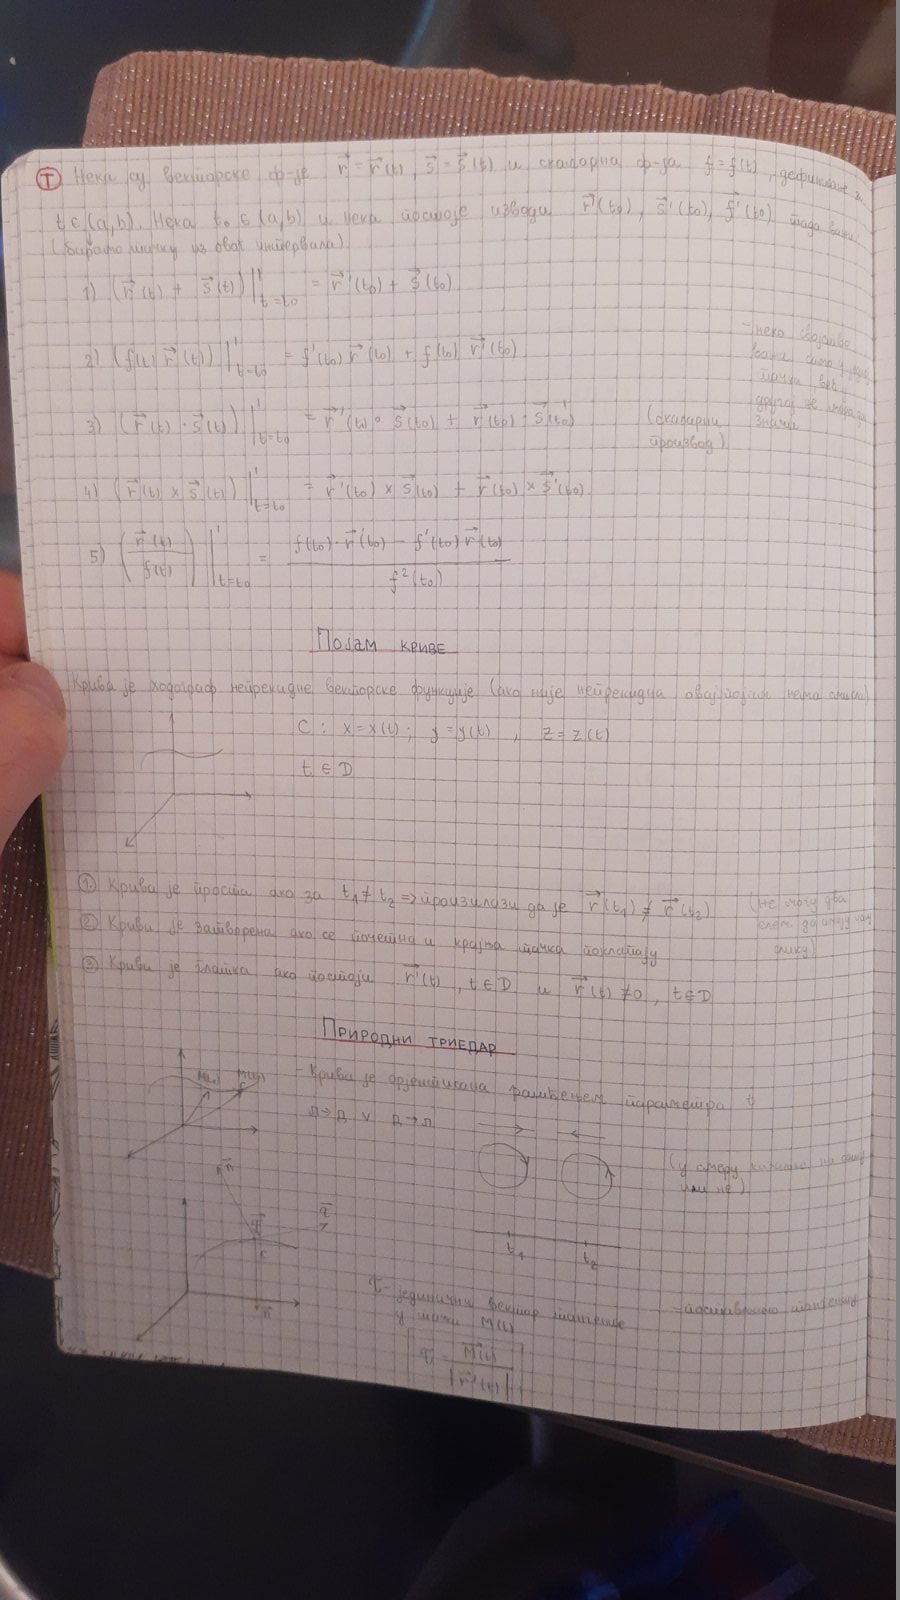 Т Нека су векторске ф-је r⃗ = r⃗(t), s⃗ = s⃗(t) и скаларна ф-ја f = f(t), дефинисане за
t ∈ (a,b). Нека t₀ ∈ (a,b) и нека постоје изводи r⃗'(t₀), s⃗'(t₀), f⃗'(t₀) тада важи:
(бирамо тачку из овог интервала)
1) (r⃗(t) + s⃗(t))|'t=t₀ = r⃗'(t₀) + s⃗(t₀)
2) (f(t) r⃗(t))|'t=t₀ = f'(t₀) r⃗(t₀) + f(t₀) r⃗'(t₀)
3) (r⃗(t) · s⃗(t))|'t=t₀ = r⃗'(t₀) ∘ s⃗(t₀) + r⃗(t₀) · s⃗'(t₀) (скаларни
производ)
- неко својство
важи само у
тачки већ у
другој не мора да
значи
4) (r⃗(t) × s⃗(t))|'t=t₀ = r⃗'(t₀) × s⃗(t₀) + r⃗(t₀) × s⃗'(t₀)
5) (r⃗(t) / f(t))|'t=t₀ = (f(t₀) · r⃗'(t₀) − f'(t₀) r⃗(t₀)) / f²(t₀)
ПОЈАМ КРИВЕ
Крива је ходограф непрекидне векторске функције (ако није непрекидна овај појам нема смисла)
C: x = x(t); y = y(t), z = z(t)
t ∈ D
1. Крива је проста ако за t₁ ≠ t₂ => произилази да је r⃗(t₁) ≠ r⃗(t₂) (не могу два
елем. да имају исту
слику)
2. Крива је затворена ако се почетна и крајња тачка поклапају
3. Крива је глатка ако постоји r⃗'(t), t ∈ D и r⃗'(t) ≠ 0, t ∈ D
ПРИРОДНИ ТРИЕДАР
- Крива је орјентисана рашћењем параметра t
Л → Д ∨ Д → Л
(у смеру казаљке на сату
или не)
t₁ t₂
τ⃗ - јединични вектор тангенте
у тачки M(t)